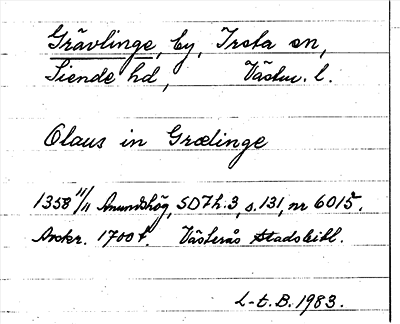 Grävlinge, by, Irsta sn,
Siende hd, Västm. l.
Olaus in Grælinge
1358 11/11 Anundshög, SD7h.3, s.131, nr 6015.
Avskr. 1700t. Västerås Stadsbibl.
L-E.B. 1983.